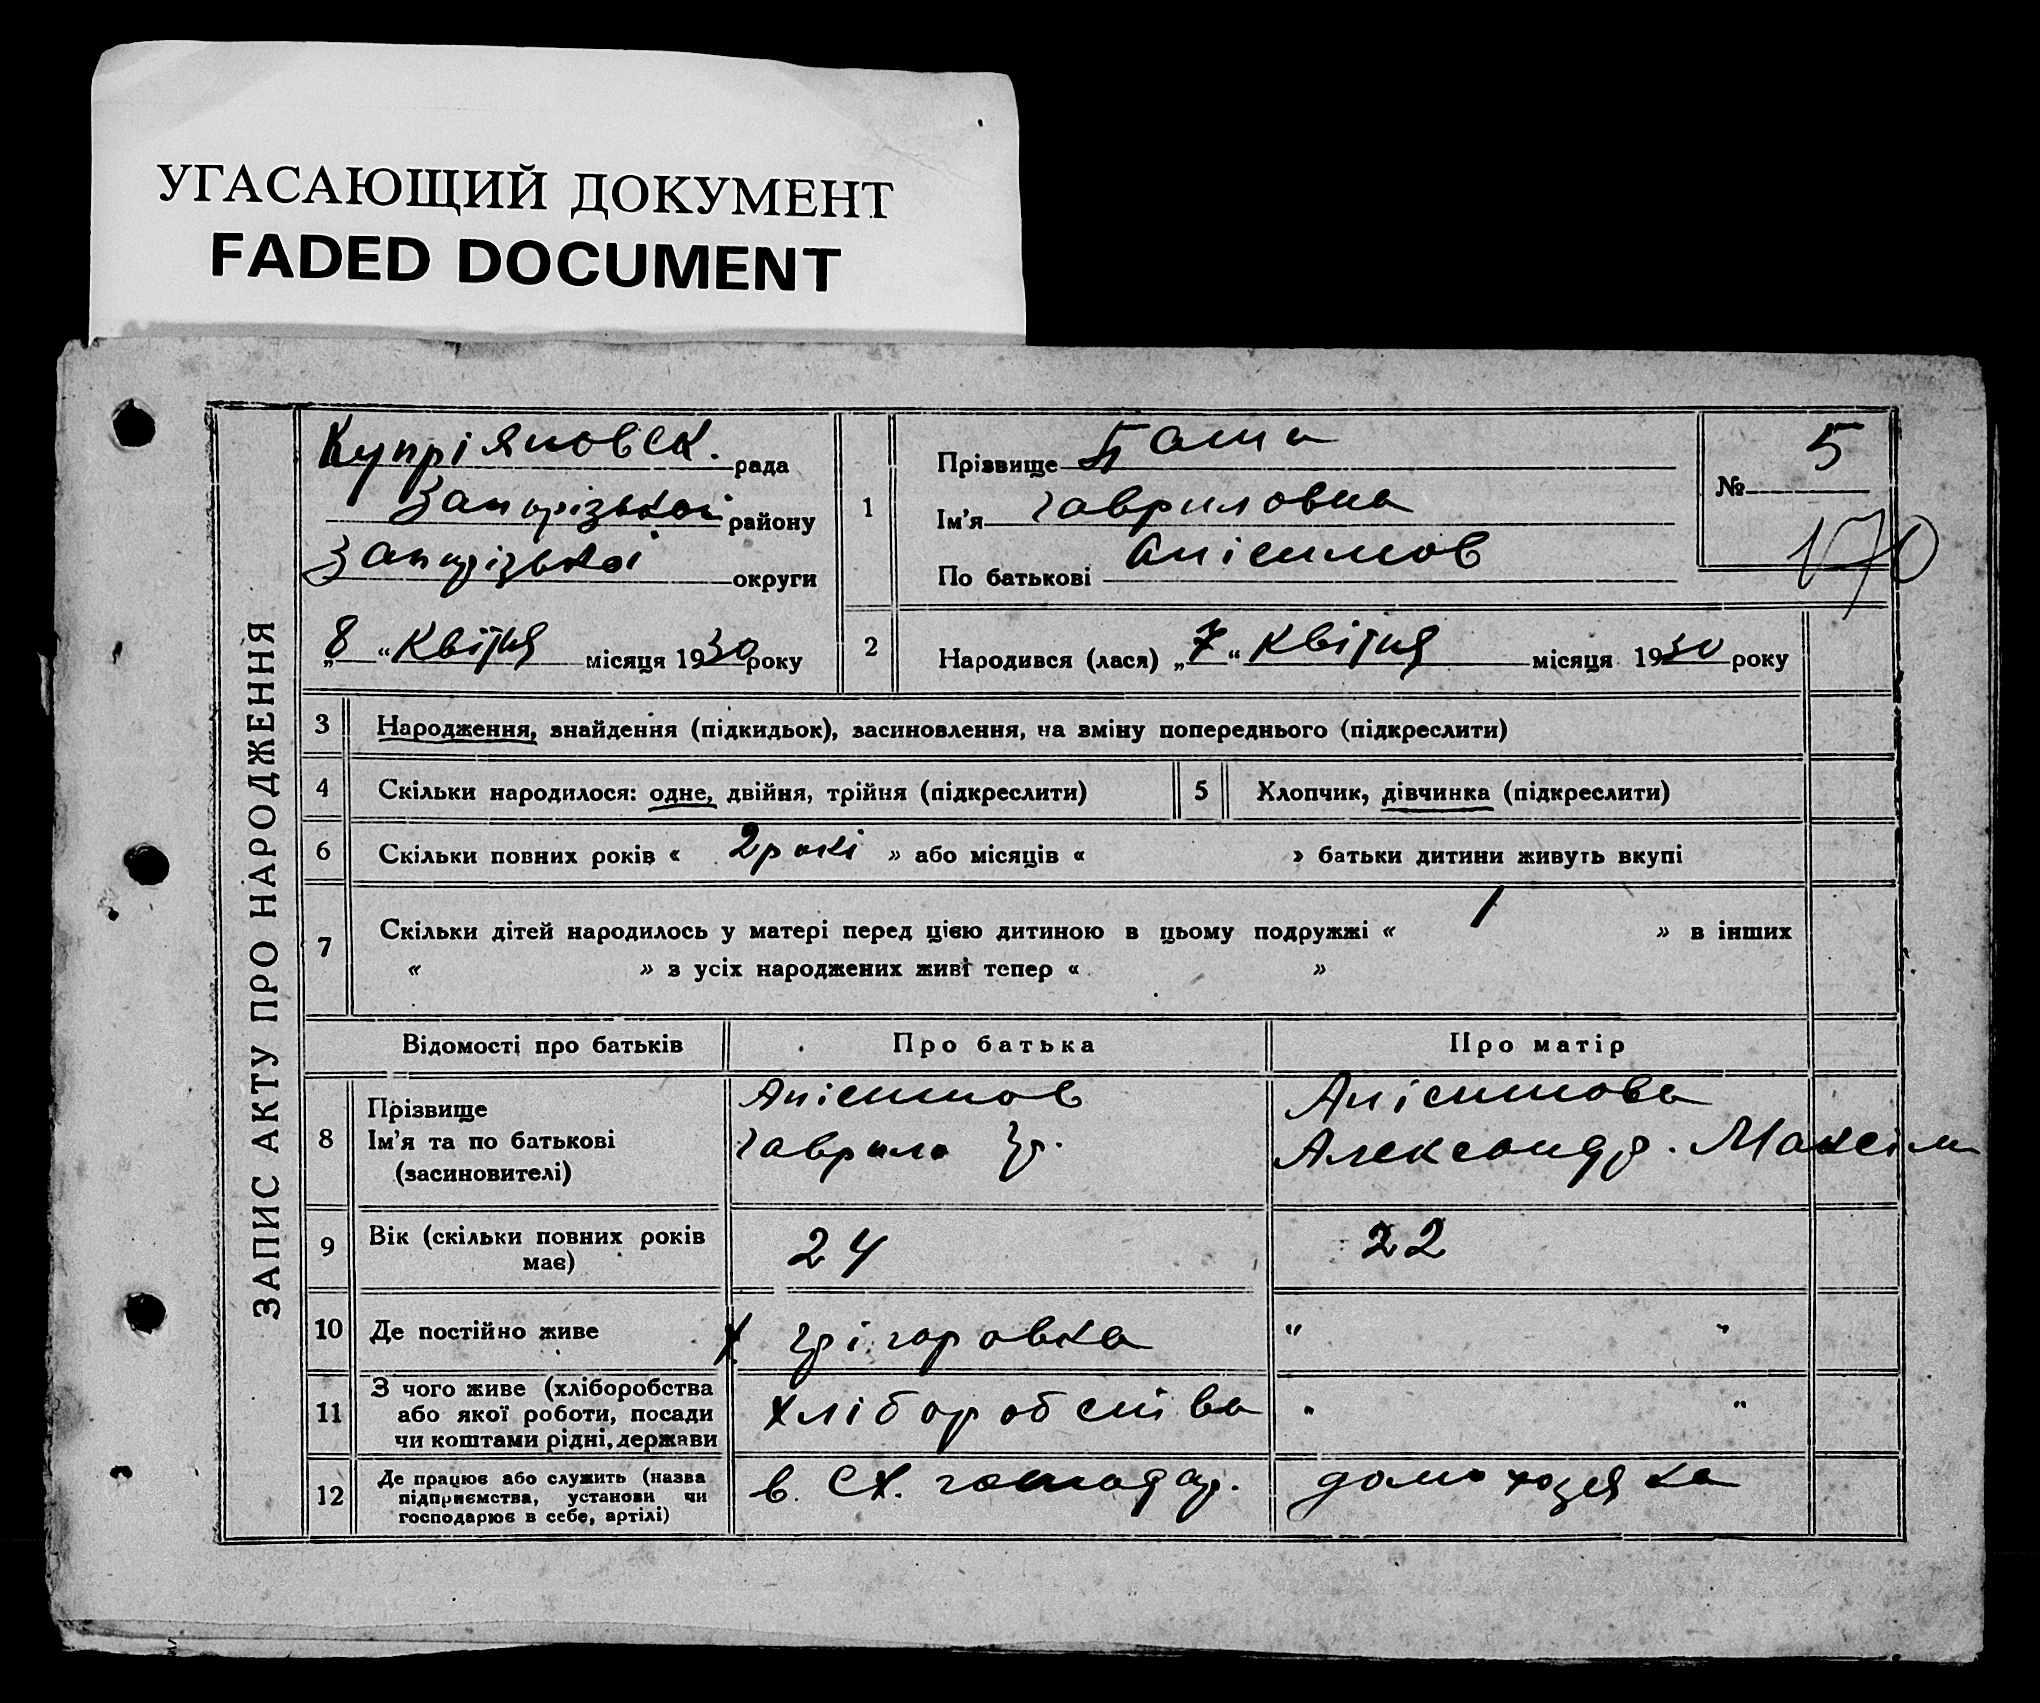 УГАСАЮЩИЙ ДОКУМЕНТ
FADED DOCUMENT
ЗАПИС АКТУ ПРО НАРОДЖЕННЯ
Купріяновск. рада
Запорізької району
Запорізької округи
„8“ Квітня місяця 1930 року
1
Прізвище
Ім'я Гавриловна
По батькові Анісимов
№ 5
170
2
Народився (лася) „7“ Квітня місяця 1930 року
3 Народження, знайдення (підкидьок), засиновлення, на зміну попереднього (підкреслити)
4 Скільки народилося: одне, двійня, трійня (підкреслити) 5 Хлопчик, дівчинка (підкреслити)
6 Скільки повних років « 2 рокі » або місяців « » батьки дитини живуть вкупі
7 Скільки дітей народилось у матері перед цією дитиною в цьому подружжі « 1 » в інших
« » з усіх народжених живі тепер « »
Відомості про батьків Про батька Про матір
8 Прізвище Анісимов Анісимова
Ім'я та по батькові Гаврило Гр. Александр. Максім
(засиновителі)
9 Вік (скільки повних років має) 24 22
10 Де постійно живе х Грігоровка " "
11 З чого живе (хліборобства або якої роботи, посади чи коштами рідні, держави Хліборобства " "
12 Де працює або служить (назва підприємства, установи чи господарює в себе, артілі) в. СХ. господар. домохозяйка